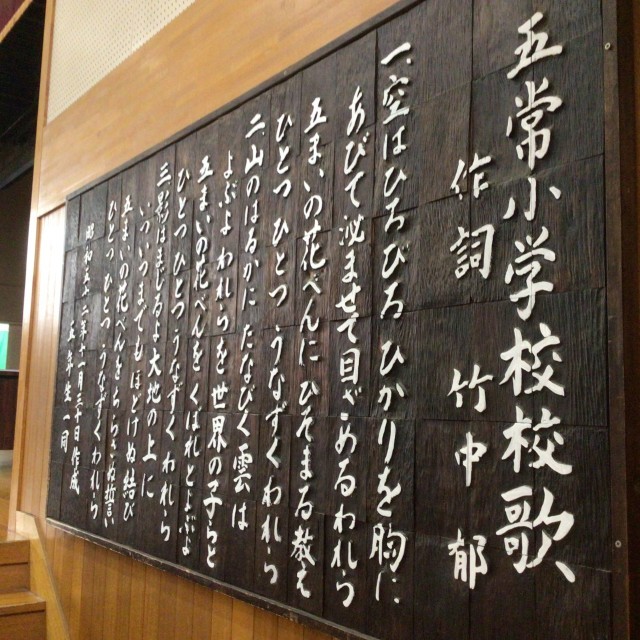 五常小学校校歌
作詞 竹中郁
一、空はひろびろ ひかりを胸に
あびて泌ませて目ざめるわれら
五まいの花べんに ひそまる教え
ひとつ ひとつ うなずくわれら
二、山のはるかに たなびく雲は
よぶよ われらを 世界の子らと
五まいの花べんを くはれとよぶよ
ひとつひとつ うなずく われら
三、影はまじるよ 大地の上に
いついつまでも ほどけぬ結び
五まいの花べんを ちらさぬ誓い
ひとつ ひとつ うなずくわれら
月三十日作成
一同